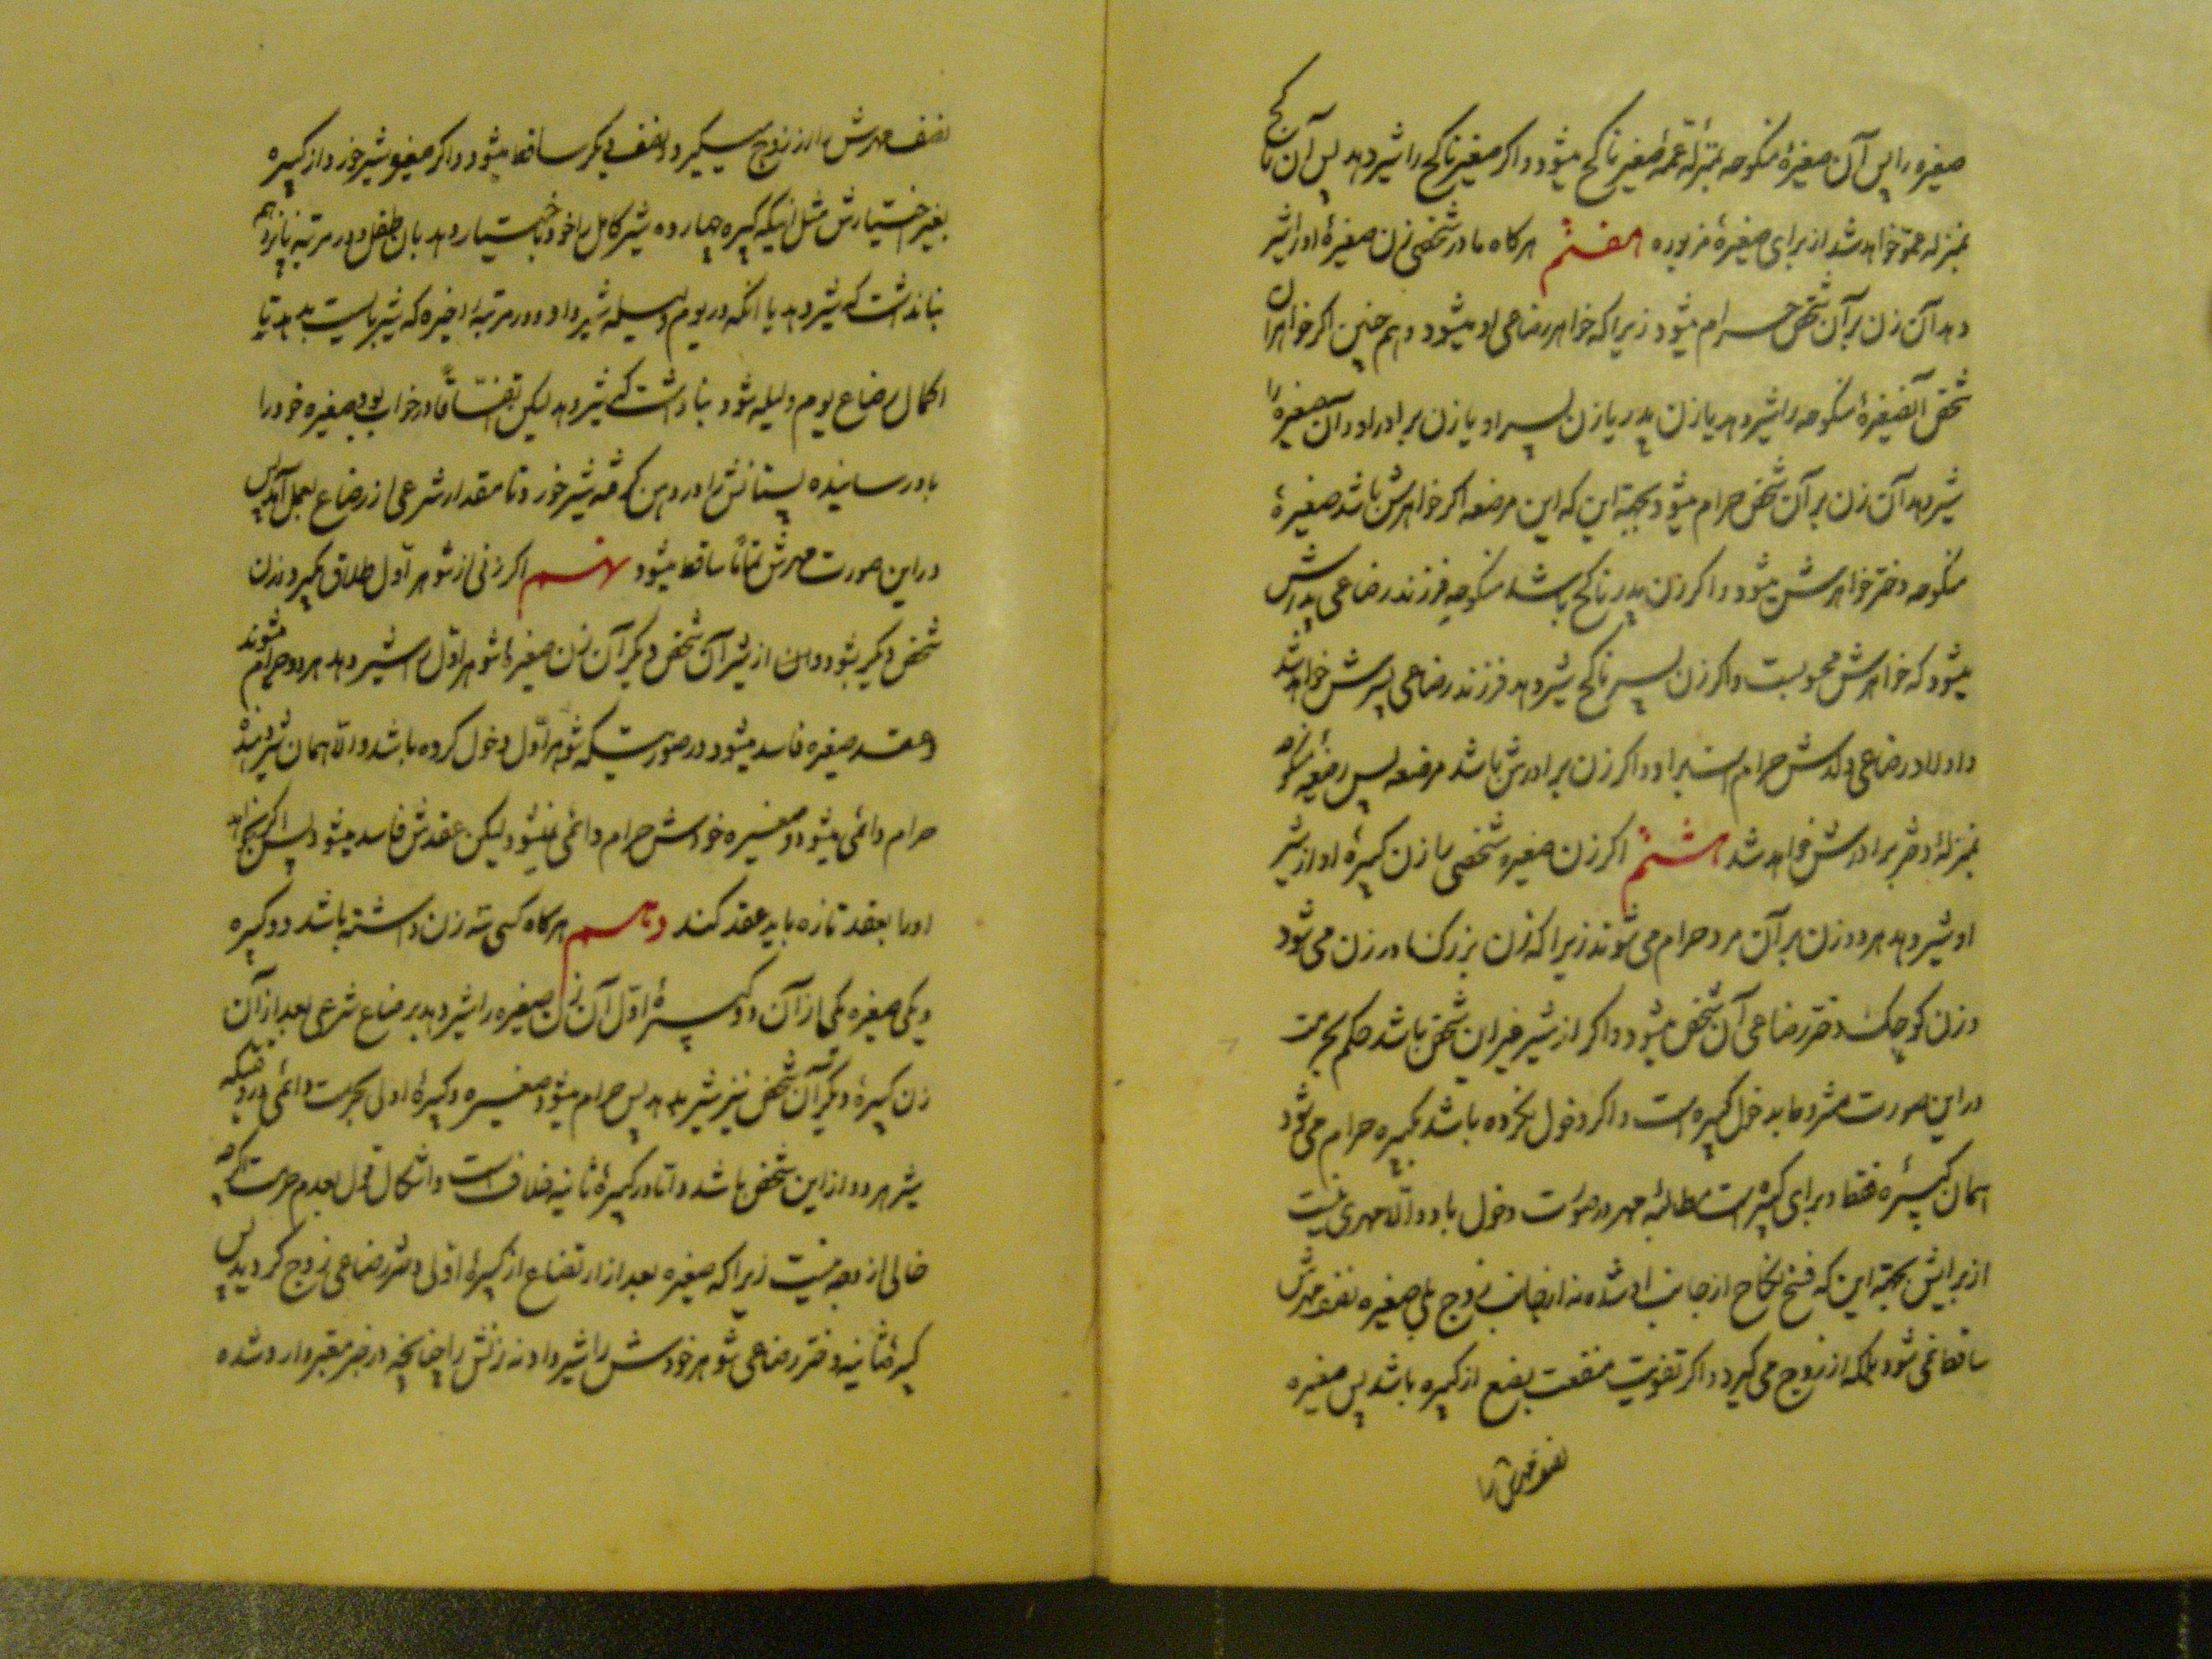 صغیره را پس آن صغیرهٔ منکوحه بمنزلهٔ عمّهٔ صغیر ناکح میشود و اکر صغیر ناکح را شیر دهد پس آن ناکح
بمنزله عمو خواهد شد از برای صغیرهٔ مزبوره هفتم هرکاه مادر شخصی زن صغیرهٔ او را شیر
دهد آن زن بر آن شخص حرام میشود زیرا که خواهر رضاعی او میشود و هم چنین اکر خواهر آن
شخص آنصغیرهٔ منکوحه را شیر دهد یا زن پدر یا زن پسر او یا زن برادر او آن صغیره را
شیر دهد آن زن بر آن شخص حرام میشود بجهة این که این مرضعه اکر خواهرش باشد صغیرهٔ
منکوحه دختر خواهرش میشود و اکر زن پدر ناکح باشد منکوحه فرزند رضاعی پدرش
میشود که خواهرش محسوبست و اکر زن پسر ناکح شیر دهد فرزند رضاعی پسرش خواهد شد
و اولاد رضاعی ولدش حرام است بر او و اکر زن برادرش باشد مرضعه پس رضیعهٔ منکوحه
بمنزلهٔ دختر برادرش خواهد شد هشتم اکر زن صغیره شخصی را زن کبیرهٔ او از شیر
او شیر دهد هر دو زن بر آن مرد حرام می شوند زیرا که زن بزرک مادر زن می شود
و زن کوچک دختر رضاعی آن شخص میشود و اکر از شیر غیر این شخص باشد حکم بحرمت
در این صورت مشروط بدخول کبیره است و اکر دخول نکرده باشد کبیره حرام می شود
همان کبیره فقط و برای کبیره است مطالبهٔ مهر در صورت دخول باو و الّا مهری نیست
از برایش بجهة این که فسخ نکاح از جانب او شده نه از جانب زوج بلی صغیره نصف مهرش
ساقط نمی شود بلکه از زوج می کیرد و اکر تفویت منفعت بضع از کبیره باشد پس صغیره
نصف مهرش را
نصف مهرش را از زوج میکیرد و نصف دیکر ساقط میشود و اکر صغیره شیر خورد از کبیره
بغیر اختیارش مثل اینکه کبیره چهارده شیر کامل را خود باختیار دهد بان طفل و در مرتبه پانزدهم
ندانست که شیر دهد یا آنکه در یوم و لیله شیر داد و در مرتبهٔ اخیره که شیر بایست بدهد تا
اکمال رضاع یوم و لیله شود ندانست که شیر دهد لیکن اتفاقاً در خواب بود صغیره خود را
باو رسانیده پستانش را در دهن کرفته شیر خورد تا مقدار شرعی از رضاع بعمل آمد پس
در این صورت مهرش تماماً ساقط میشود نهم اکر زنی از شوهر اول طلاق بکیرد و زن
شخص دیکر بشود و ان از شیر آن شخص دیکر آن زن صغیرهٔ شوهر اوّل را شیر دهد هر دو حرام میشوند
و عقد صغیره فاسد میشود در صورتیکه شوهر اوّل دخول کرده باشد و الّا همان شیر دهنده
حرام دائمی میشود و صغیره خودش حرام دائمی نمیشود لیکن عقدش فاسد میشود پس اکر بخواهد
او را بعقد تازه باید عقد کند دهم هرکاه کسی سه زن داشته باشد دو کبیره
و یکی صغیره یکی از آن دو کبیرهٔ اول آن زن صغیره را شیر دهد برضاع شرعی بعد از آن
زن کبیرهٔ دیکر آن شخص نیز شیر بدهد پس حرام میشود صغیره و کبیرهٔ اولی بحرمت دائمی در وقتیکه
شیر هر دو از این شخص باشد و امّا در کبیرهٔ ثانیه خلاف است و اشکال قول بعدم حرمت اکرچه
خالی از وجه نیست زیرا که صغیره بعد از ارتضاع از کبیرهٔ اوّلی دختر رضاعی زوج کردید پس
کبیرهٔ ثانیه دختر رضاعی شوهر خودش را شیر داد نه زنش را چنانچه در خبر معتبر وارد شده